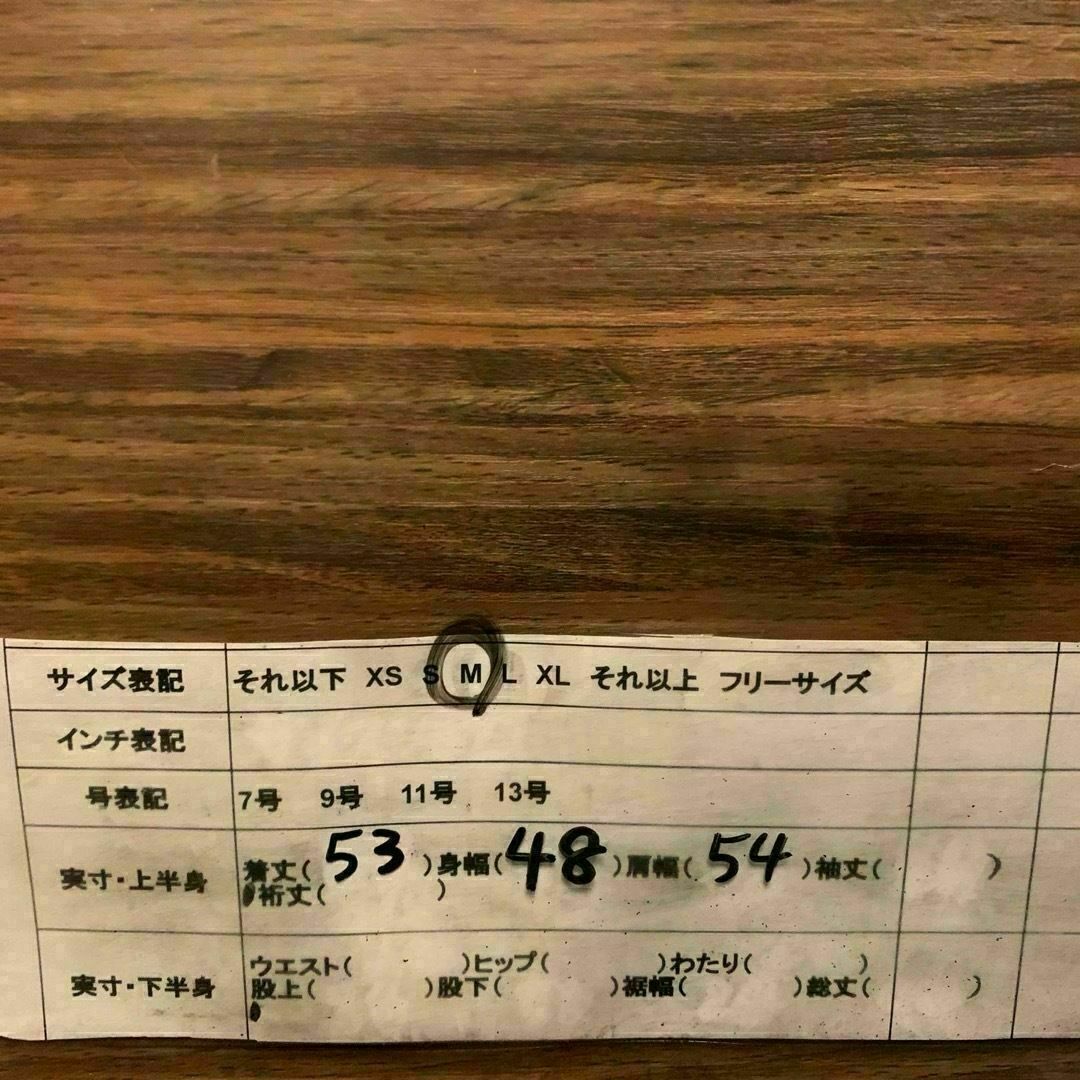 サイズ表記 それ以下 XS S M L XL それ以上 フリーサイズ
インチ表記
号表記 7号 9号 11号 13号
実寸・上半身 着丈( 53 )身幅( 48 )肩幅( 54 )袖丈( )
裄丈( )
実寸・下半身 ウエスト( )ヒップ( )わたり( )
股上( )股下( )裾幅( )総丈( )